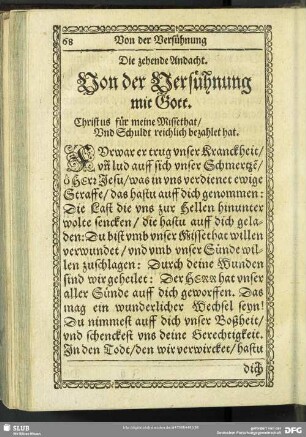 68 Von der Versühnung
Die zehende Andacht.
Von der Versühnung
mit Gott.
Christus für meine Missethat/
Vnd Schuldt reichlich bezahlet hat.
FVrwar er trug vnser Kranckheit/
vñ lud auff sich vnser Schmertzẽ/
ô HErr Jesu/was in vns verdienet ewige
Straffe/das hastu auff dich genommen:
Die Last die vns zur Hellen hinunter
wolte sencken/ die hastu auff dich gela-
den: Du bist vmb vnser Missethat willen
verwundet/ vnd vmb vnser Sünde wil-
len zuschlagen: Durch deine Wunden
sind wir geheilet: Der HErr hat vnser
aller Sünde auff dich geworffen. Das
mag ein wunderlicher Wechsel seyn!
Du nimmest auff dich vnser Boßheit/
vnd schenckest vns deine Gerechtigkeit.
In den Todt/den wir verwircket/ hastu
dich
SLUB
DFG